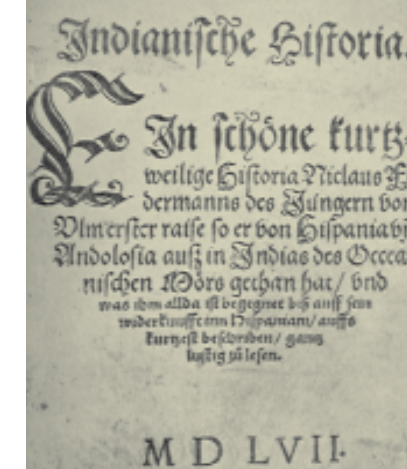 Indianiſche Hiſtoria.
EIn ſchöne kurtz-
weilige Hiſtoria Niclaus Fe
dermanns des Jüngern von
Vlm erſter raiſe ſo er von Hiſpania vñ
Andoloſia auß in Indias des Occea
niſchen Mörs gethan hat/ vnd
was ihm allda iſt begegnet biß auff ſein
widerkunfft inn Hiſpaniam/ auffs
kurtzeſt beſchriben/ gantz
luſtig zů leſen.
M D LVII.